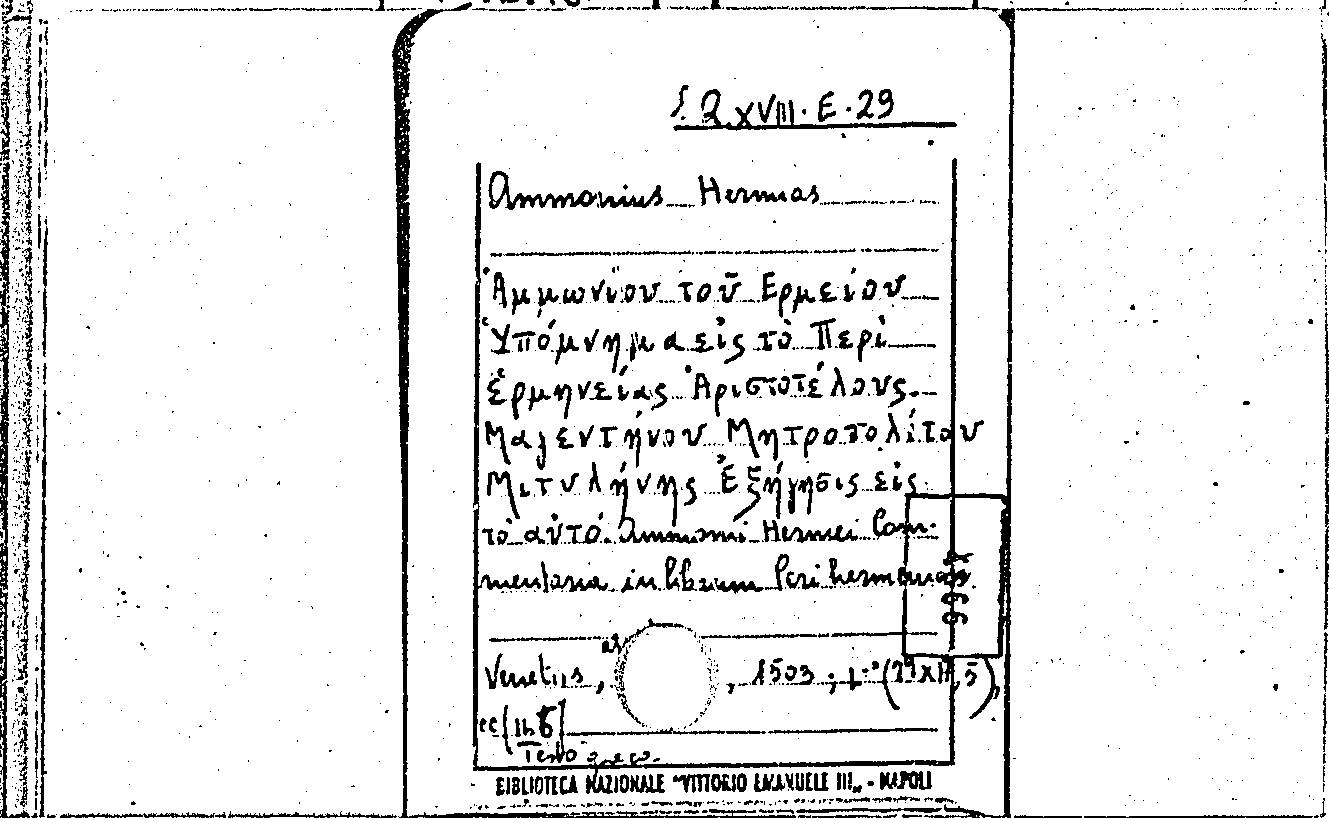 S. Q. XVII. E. 29
Ammonius Hermias
Ἀμμωνίου τοῦ Ερμείου
Ὑπόμνημα εἰς τὸ Περὶ
ἑρμηνείας Ἀριστοτέλους.
Μαγεντήνου Μητροπολίτου
Μιτυλήνης Ἐξήγησις εἰς
τὸ αὐτό. Ammonii Hermei Com-
mentaria in librum Peri hermenias
9998
Venetiis, , 1503;
Testo greco.
BIBLIOTECA NAZIONALE "VITTORIO EMANUELE III„ - NAPOLI